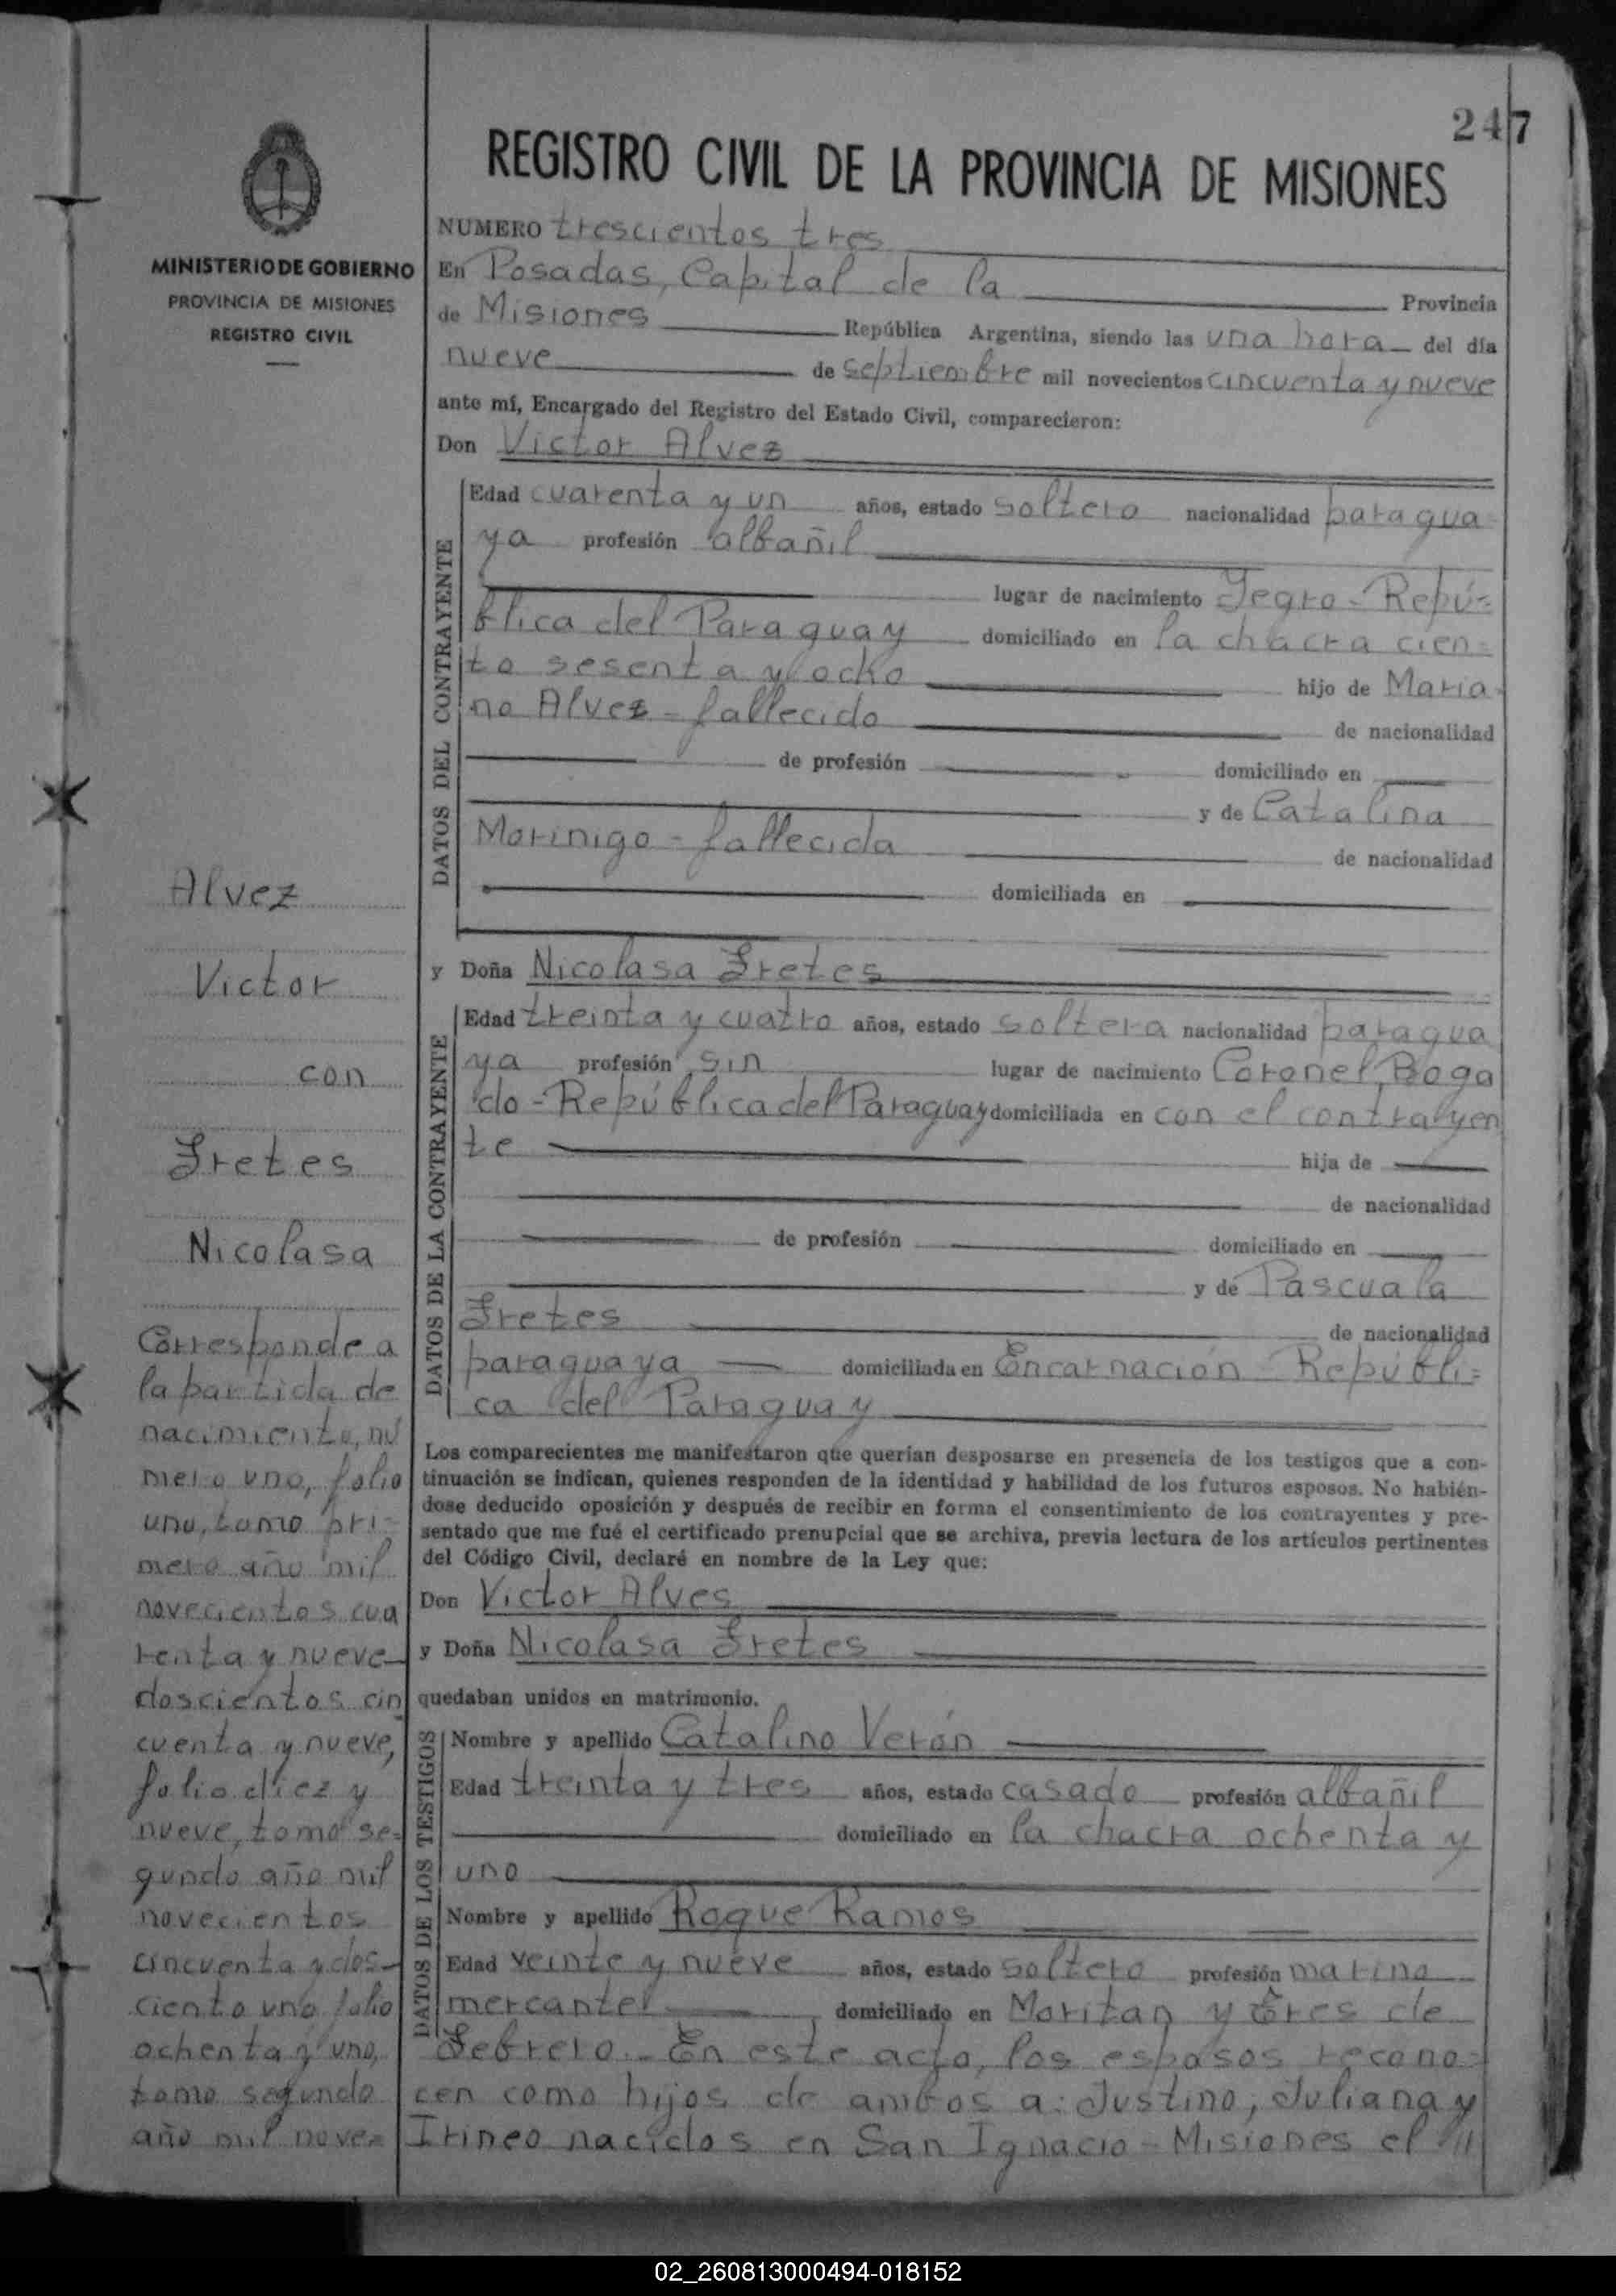 247
REGISTRO CIVIL DE LA PROVINCIA DE MISIONES
MINISTERIO DE GOBIERNO
PROVINCIA DE MISIONES
REGISTRO CIVIL
NUMERO trescientos tres
En Posadas, Capital de la Provincia
de Misiones República Argentina, siendo las una hora del día
nueve de septiembre mil novecientos cincuenta y nueve
ante mí, Encargado del Registro del Estado Civil, comparecieron:
Don Victor Alvez
DATOS DEL CONTRAYENTE
Edad cuarenta y un años, estado soltero nacionalidad paragua
ya profesión albañil
lugar de nacimiento Yegro - Repú=
blica del Paraguay domiciliado en la chacra cien=
to sesenta y ocho hijo de Maria
no Alvez - fallecido de nacionalidad
de profesión domiciliado en
y de Catalina
Morinigo - fallecida de nacionalidad
domiciliada en
y Doña Nicolasa Fretes
DATOS DE LA CONTRAYENTE
Edad treinta y cuatro años, estado soltera nacionalidad paragua
ya profesión sin lugar de nacimiento Coronel Boga
do - República del Paraguay domiciliada en con el contrayen
te hija de
de nacionalidad
de profesión domiciliado en
y de Pascuala
Fretes de nacionalidad
paraguaya domiciliada en Encarnación - Repúbli=
ca del Paraguay
Los comparecientes me manifestaron que querían desposarse en presencia de los testigos que a con-
tinuación se indican, quienes responden de la identidad y habilidad de los futuros esposos. No habién-
dose deducido oposición y después de recibir en forma el consentimiento de los contrayentes y pre-
sentado que me fué el certificado prenupcial que se archiva, previa lectura de los artículos pertinentes
del Código Civil, declaré en nombre de la Ley que:
Don Victor Alves
y Doña Nicolasa Fretes
quedaban unidos en matrimonio.
DATOS DE LOS TESTIGOS
Nombre y apellido Catalino Verón
Edad treinta y tres años, estado casado profesión albañil
domiciliado en la chacra ochenta y
uno
Nombre y apellido Roque Ramos
Edad veinte y nueve años, estado soltero profesión marino
mercantel domiciliado en Moritan y Tres de
Febrero.- En este acto, los esposos recono=
cen como hijos de ambos a: Justino, Juliana y
Irineo nacidos en San Ignacio - Misiones el 11
Alvez
Victor
con
Fretes
Nicolasa
Corresponde a
la partida de
nacimiento, nú
mero uno, folio
uno, tomo pri-
mero año mil
novecientos cua
renta y nueve-
doscientos cin
cuenta y nueve,
folio diez y
nueve, tomo se=
gundo año mil
novecientos
cincuenta y dos-
ciento uno folio
ochenta y uno,
tomo segundo
año mil nove=
02_260813000494-018152